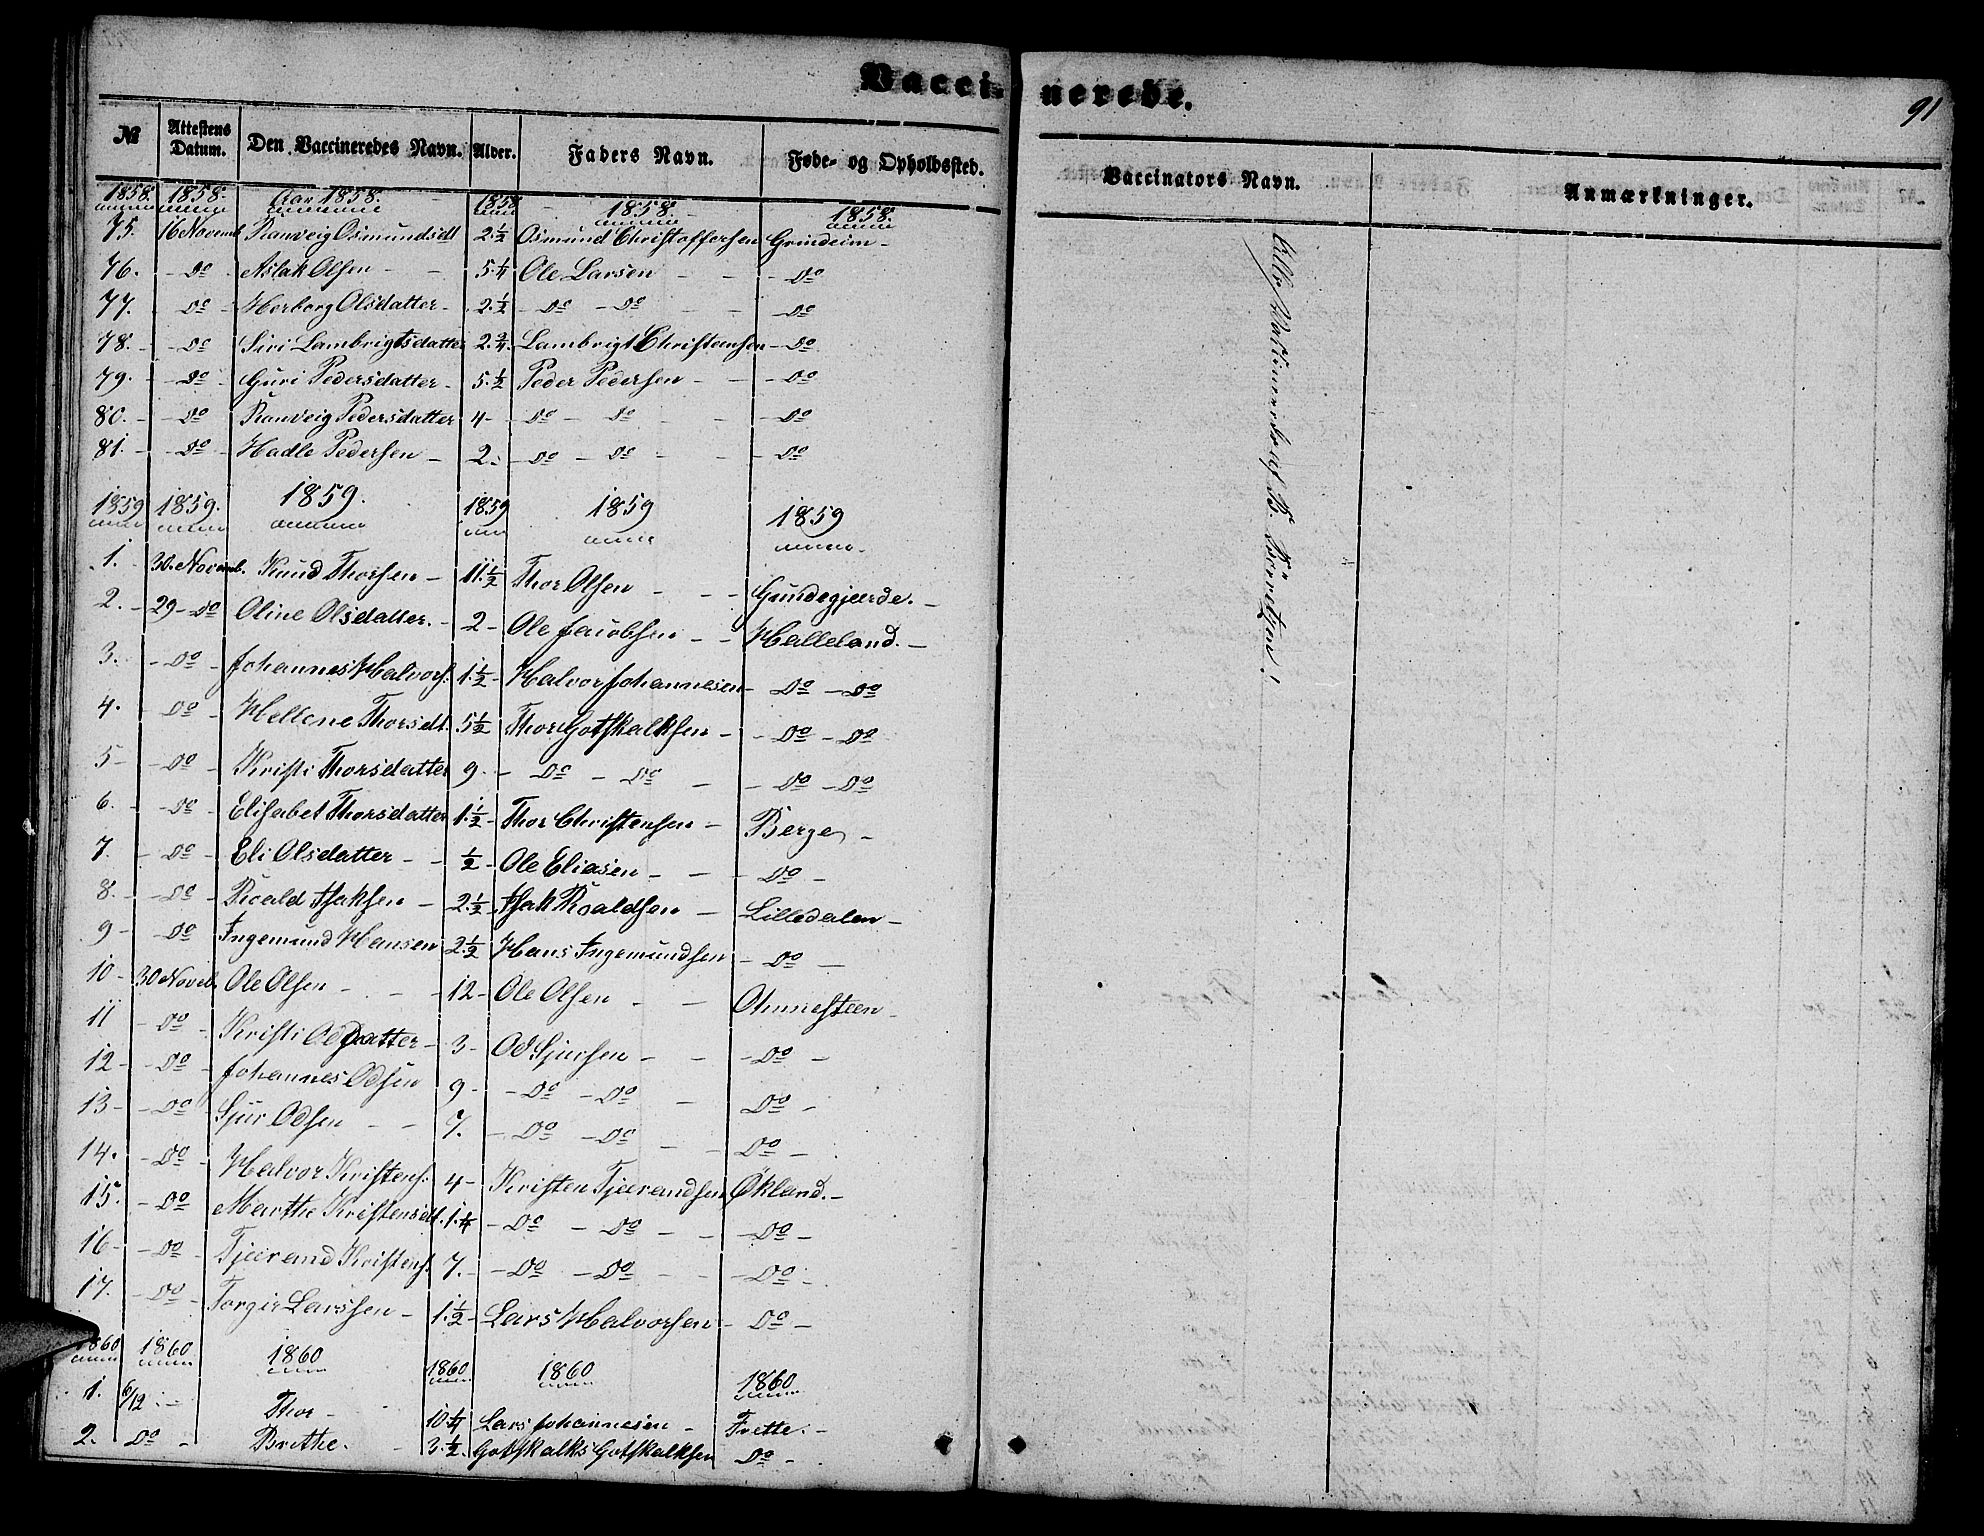 Vaccinerede.
91
№ Attestens Datum. Den Vaccineredes Navn. Alder. Faders Navn. Føde- og Opholdssted. Vaccinators Navn. Anmærkninger.
1858. 1858. Aar 1858. 1858 1858. 1858.
75. 16 Novemb. Ranveig Osmundsdt 2.½ Osmund Christoffersen Grindeim -
76. - Do - Aslak Olsen - - 5.¼ Ole Larsen - - - Do
77. - Do - Herborg Olsdatter - 2.½ - Do - Do - - Do
78. - Do - Siri Lambrigtsdatter 2.¾ Lambrigt Christensen - Do
79. - Do - Guri Pedersdatter - 5.½ Peder Pedersen - - - Do
80. - Do Ranveig Pedersdatter 4 - - Do - Do - - Do
81. - Do - Hadle Pedersen - 2. - Do - Do - - Do
1859 1859. 1859. 1859 1859 1859
1. 30. Novemb. Knud Thorsen - 11.½ Thor Olsen - - - Gundegjerde. -
2. - 29 - Do Oline Olsdatter. - 2 - Ole Jacobsen - - Halleland. -
3. - Do - Johannes Halvors. 1.½ - Halvor Johannesen - Do - Do
4. - Do - Hellene Thorsdt. 5½ Thor Gotskalksen - - Do - Do
5 - - Do - Kristi Thorsdatter 9. - Do - Do - - Do - Do
6. - Do - Elisabet Thorsdatter 1.½ - Thor Christensen - Berge -
7. - Do - Eli Olsdatter - - ½ - Ole Eliasen - - - Do -
8. - - Do - Roald Isaksen - 2.½ - Isak Roaldsen - Lilledalen -
9 - - Do Ingemund Hansen 2.½ - Hans Ingemundsen - Do -
10 - 30 Noveb. Ole Olsen - - - 12 - Ole Olsen - - Ohmesteen -
11 - Do - Kristi Odsdatter - 3 - Od Sjursen - - - Do -
12 - - Do - Johannes Odsen 9 - - Do - Do - Do -
13 - - Do - Sjur Odsen - - 7. - Do - Do - Do -
14. - Do - Halvor Kristens. 4 - Kristen Tjerandsen Økland. -
15. - Do - Marthe Kristensdt. 1.¼ - Do - Do - - - Do -
16 - - Do - Tjerand Kristens. 7. - Do - Do - - - Do -
17. - Do - Torgir Larssen - 1.½ - Lars Halvorsen - Do -
1860 1860 1860 1860 1860 1860
1. 6/12 - Thor - 10.¼ Lars Johannesen - Frette. -
2. Do - Brithe. - 3.½. Gotskalks Gotskalksen Do -